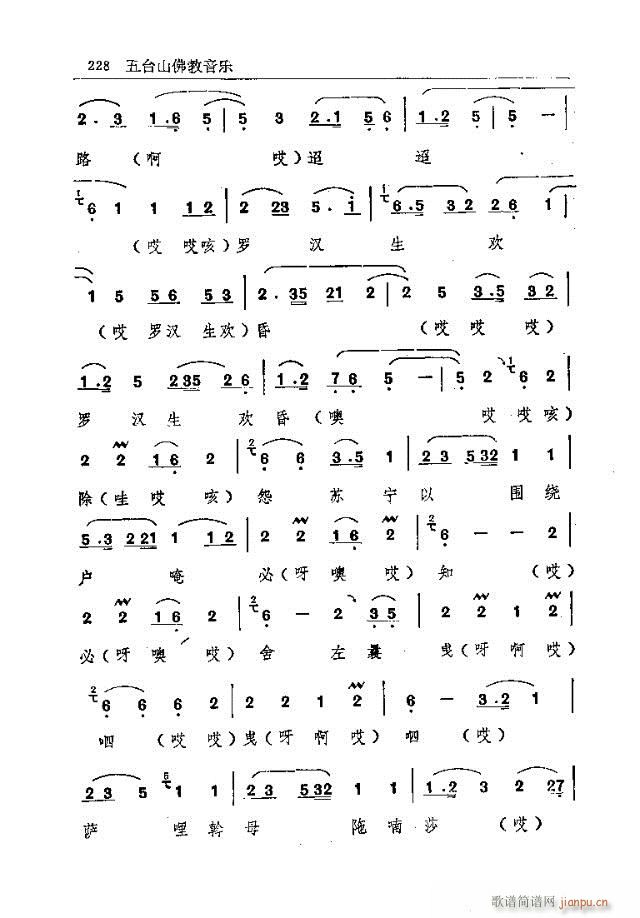 228 五台山佛教音乐
2·3 1·6 5 | 5 3 2·1 5 6 | 1·2 5 5 — |
路（啊 哎）迢 迢
6 1 1 1 2 | 2 2 3 5·i | 6·5 3 2 2 6 1 |
（哎 哎咳）罗 汉 生 欢
1 5 5 6 5 3 | 2·35 21 2 | 2 5 3·5 3 2 |
（哎 罗汉 生欢）昏 （哎 哎 哎）
1·2 5 235 2 6 | 1·2 7 6 5 — | 5 2 6 2 |
罗 汉 生 欢 昏（噢 哎 哎 咳）
2 2 1 6 2 | 6 6 3·5 1 | 2 3 5 32 1 1 |
除（哇 哎 咳）怨 苏 宁 以 围 绕
5·3 2 21 1 1 2 | 2 2 1 6 2 | 6 — — 2 |
户 唵 必（呀 噢 哎）知 （哎）
2 2 1 6 2 | 6 — 2 3 5 | 2 2 1 2 |
必（呀 噢 哎）舍 左 曩 曳（呀 啊 哎）
6 6 6 2 | 2 2 1 2 | 6 — 3·2 1 |
呬 （哎 哎）曳（呀 啊 哎）呬 （哎）
2 3 5 1 1 | 2 3 5 32 1 1 | 1·2 3 2 27 |
萨 哩 斡 母 陁 喃 莎 （哎）
歌谱简谱网 jianpu.cn